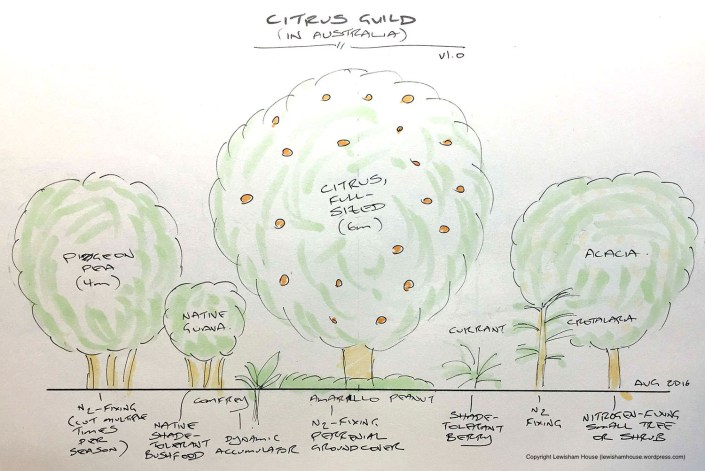 CITRUS GUILD
(IN AUSTRALIA)
V1.0
CITRUS,
FULL-
SIZED
(6m)
PIDGEON
PEA
(4m)
NATIVE
GUAVA.
ACACIA.
CURRANT
CRETALARIA
COMFREY
AMARILLO PEANUT
AUG 2016
N2-FIXING
(CUT MULTIPLE
TIMES
PER
SEASON)
NATIVE
SHADE-
TOLERANT
BUSHFOOD
DYNAMIC
ACCUMULATOR
N2-FIXING
PERRENIAL
GROUNDCOVER
SHADE-
TOLERANT
BERRY
N2
FIXING
NITROGEN-FIXING
SMALL TREE
OR SHRUB
Copyright Lewisham House (lewishamhouse.wordpress.com)